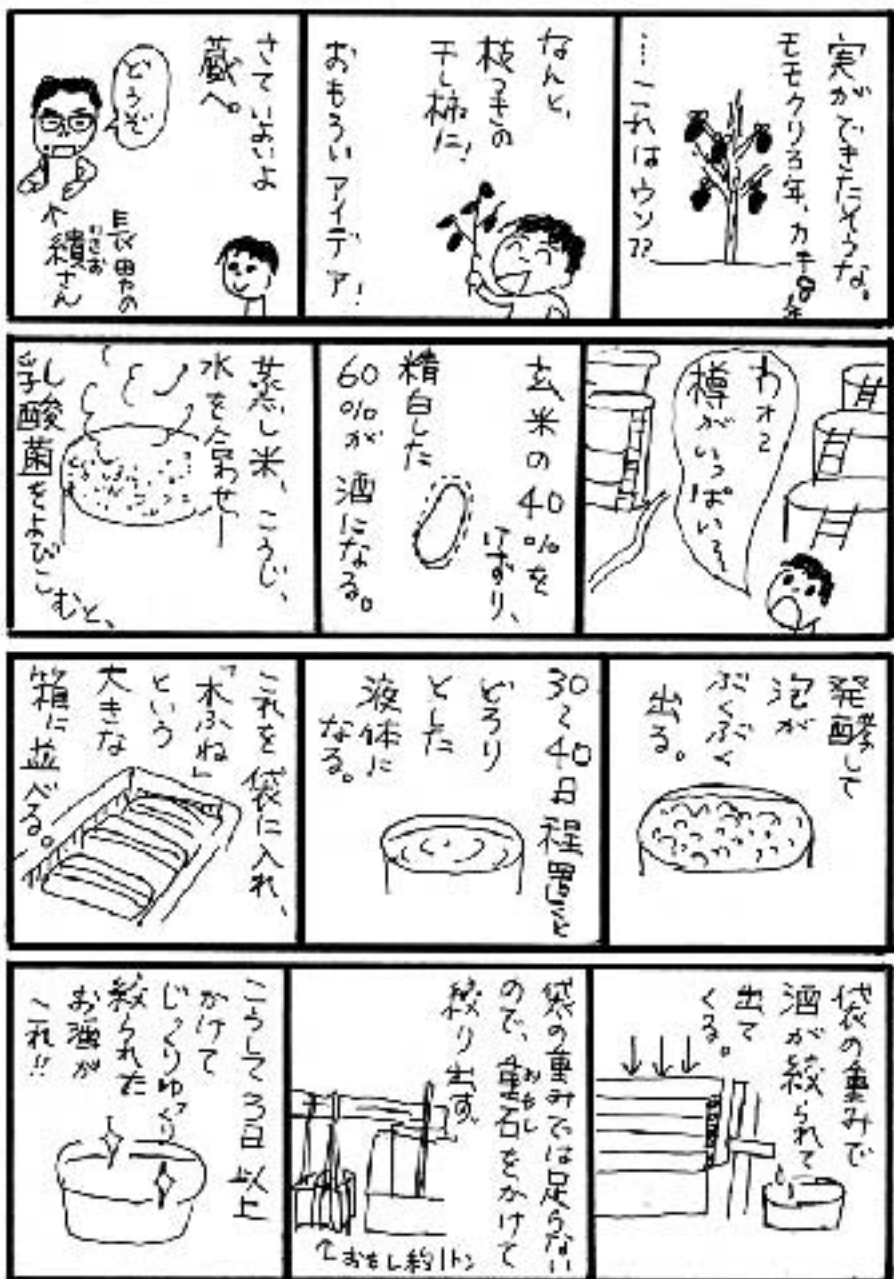 実ができたそうな。
モモクリ3年、カキ8年
…これはウソ??
なんと、
枝つきの
干し柿に!
おもろいアイデア!
さていよいよ
蔵へ。
どうぞ
長男の
↑績さん
わざお
わォ〜
樽がいっぱい〜
玄米の40%を
けずり、
精白した
60%が酒になる。
蒸し米、こうじ、
水を合わせ
乳酸菌をよびこむと、
発酵して
泡が
ぶくぶく
出る。
30〜40日程置くと
どろり
とした
液体に
なる。
これを袋に入れ、
「木ふね」
という
大きな
箱に並べる。
袋の重みで
酒が絞られて
出て
くる。
袋の重みでは足らない
ので、重石をかけて
おもし
絞り出す。
↑おもし約1トン
こうして3日以上
かけて
じっくりゆっくり
絞られた
お酒が
これ!!